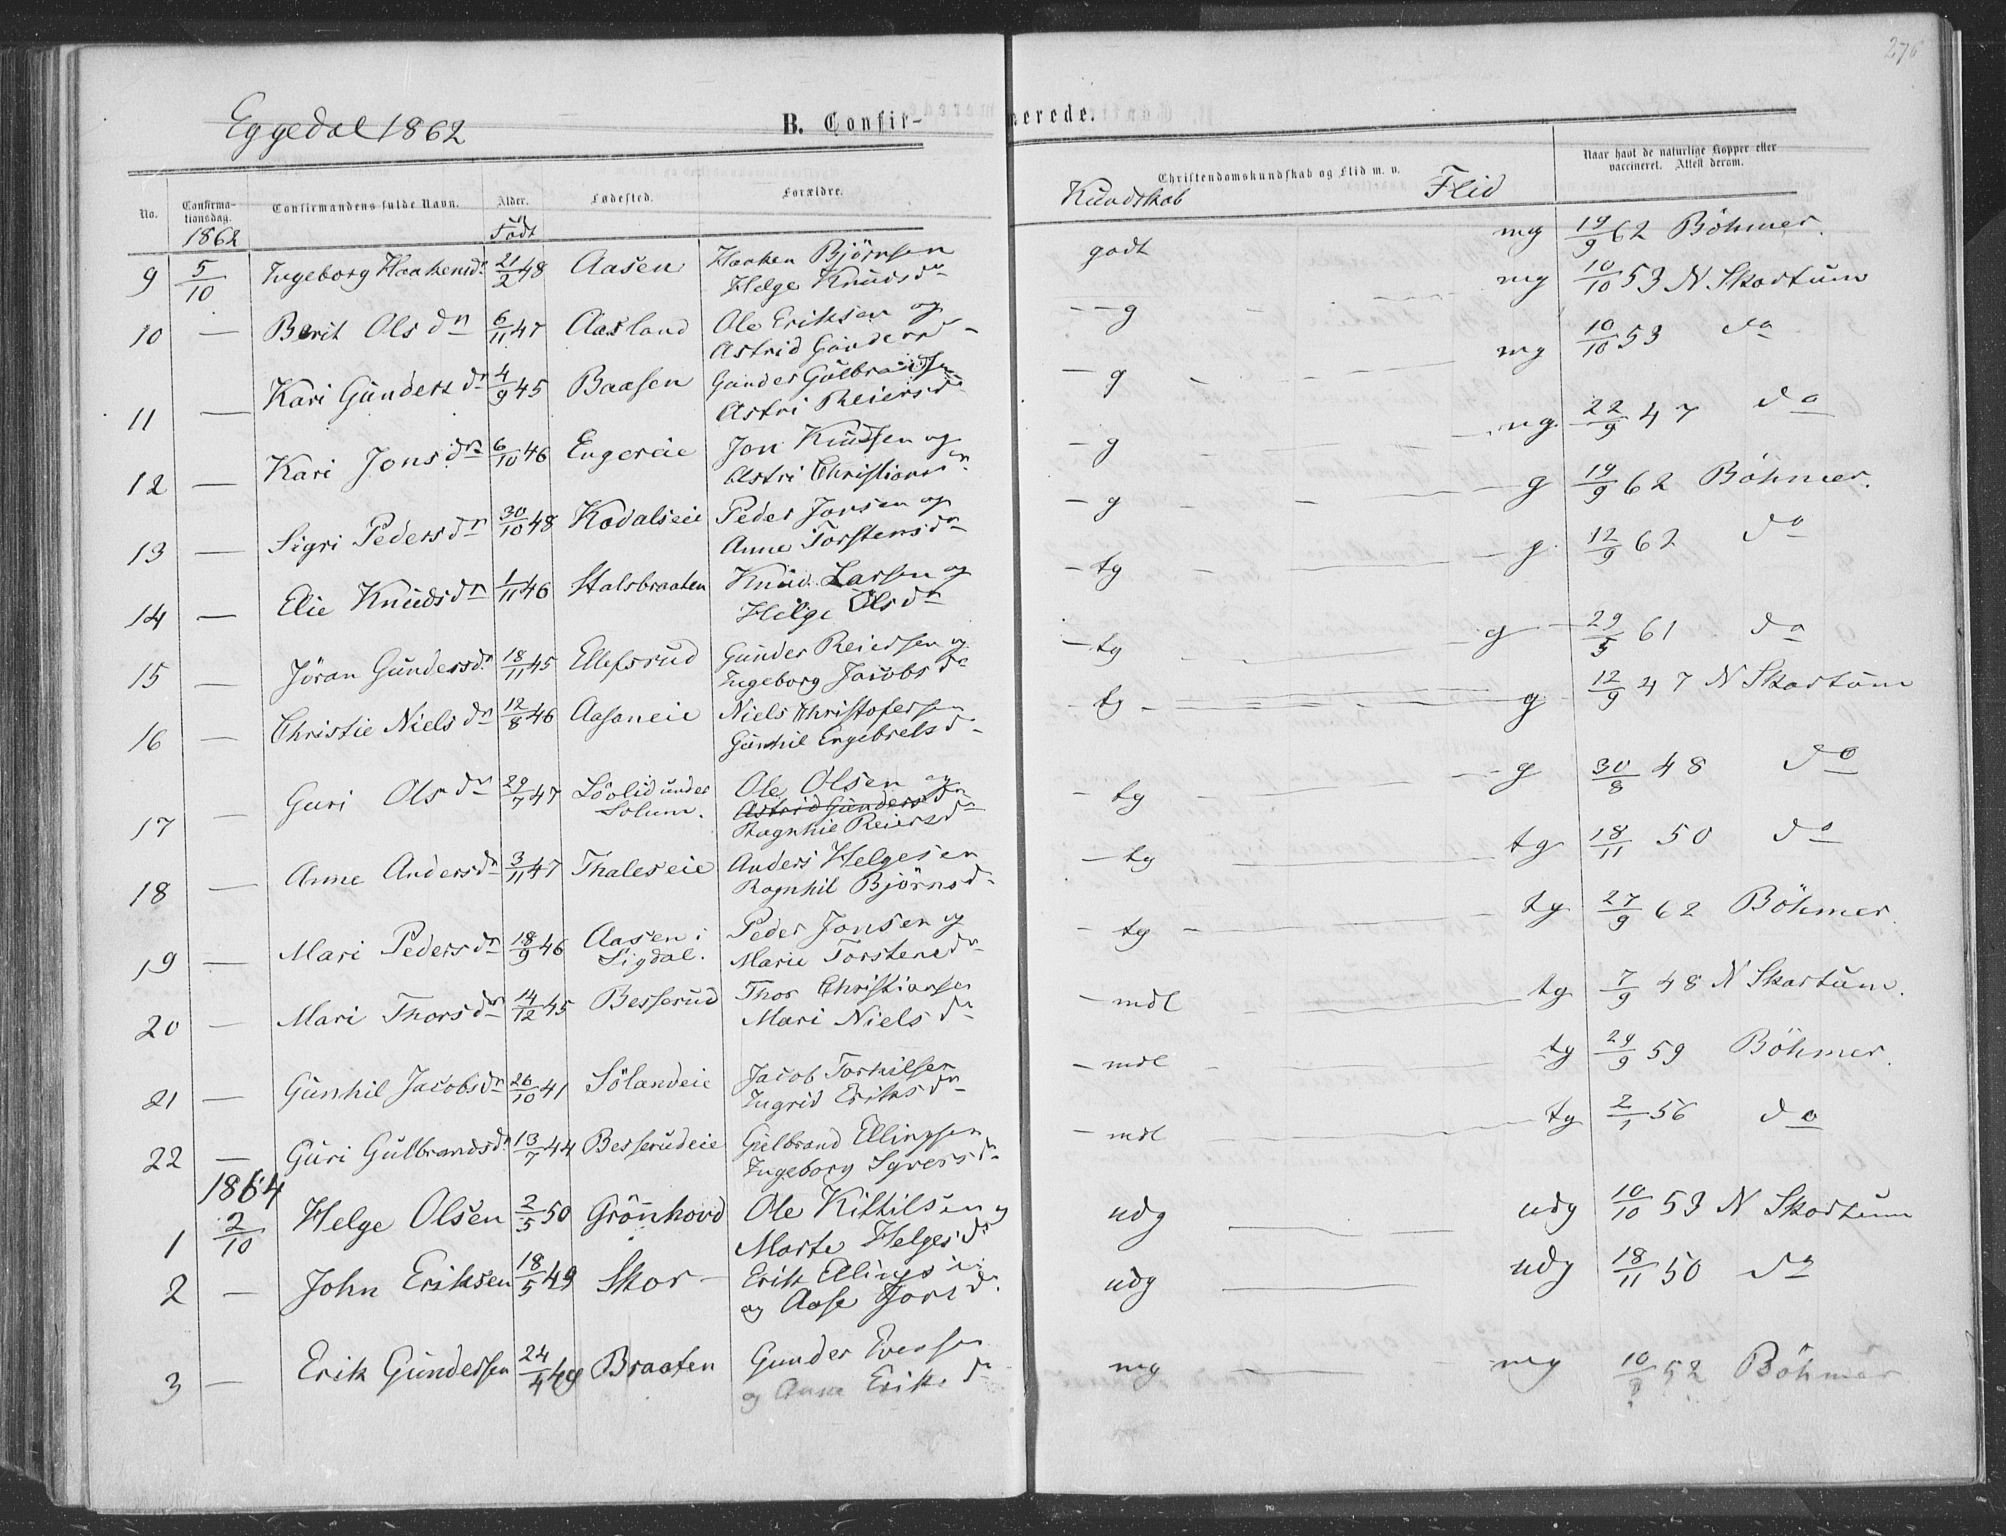 276
Eggedal 1862
B. Confir-
merede.
No.
Confirma-
tionsdag.
1862
Confirmandens fulde Navn.
Alder.
Född
Fødested.
Forældre.
Christendomskundskab og Flid m. v.
Kundskab Flid
Naar havt de naturlige Kopper eller
vaccineret. Attest derom.
9 5/10 Ingeborg Haakensdr 21/2 48 Aasen Haaken Björnsen godt mg 19/9 62 Böhmer.
Helge Knudsdr
10 — Berit Olsdn 6/11 47 Aasland Ole Eriksen og — g mg 10/10 53 N Skartum
Astrid Gundersd
11 — Kari Gundersdn 4/9 45 Baasen Gunder Gulbrandsen — g mg 10/10 53 do
Astri Reiersdr
12 — Kari Jonsdn 6/10 46 Engereie Jon Knudsen og — g mg 22/9 47 do
Astri Christiansdn
13 — Sigri Pedersdn 30/10 48 Kodalseie Peder Jonsen og — g g 19/9 62 Böhmer.
Anne Torstensdn
14 — Elie Knudsdn 1/11 46 Stalsbraaten Knud Larsen og — tg g 12/9 62 do
Helge Olsdn
15 — Jöran Gundersdr 18/11 45 Ellefsrud Gunder Reiersen og — tg g 29/5 61 do
Ingeborg Jacobsdr
16 — Christie Nielsdn 12/8 46 Aasaneie Niels Christofersen — tg g 12/9 47 N Skartum
Gunhil Engebretsd
17 — Guri Olsdn 29/7 47 Löolid under Ole Olsen og — tg g 30/8 48 do
Solum. Astrid Gundersdn
Ragnhil Reiersdn
18 — Anne Andersdr 3/11 47 Thaleseie Anders Helgesen — tg tg 18/11 50 do
Ragnhil Björnsdr
19 — Mari Pedersdn 18/9 46 Aasen i Peder Jonsen og — tg tg 27/9 62 Böhmer.
Sigdal. Marie Torstensdn
20 — Mari Thorsdn 14/12 45 Besserud Thor Christiansen — mdl tg 7/9 48 N Skartum.
Mari Nielsdn
21 — Gunhil Jacobsdn 26/10 41 Sölandeie Jacob Torkilsen — mdl tg 29/9 59 Böhmer.
Ingrid Eriksdn
22 — Guri Gulbrandsdr 13/7 44 Besserudeie Gulbrand Ellingsen — mdl tg 2/1 56 do
Ingeborg Syversdn
1864
1 2/10 Helge Olsen 2/5 50 Grönhovd Ole Kittilsen og udg udg 10/10 53 N Skartum
Marte Helgesdr
2 — John Eriksen 18/5 49 Skor Erik Ellingsen udg udg 18/11 50 do
og Aase Torsd.
3 — Erik Gundersen 24/4 49 Braaten Gunder Eversen mg mg 10/9 52 Böhmer
og Anne Eriksdr